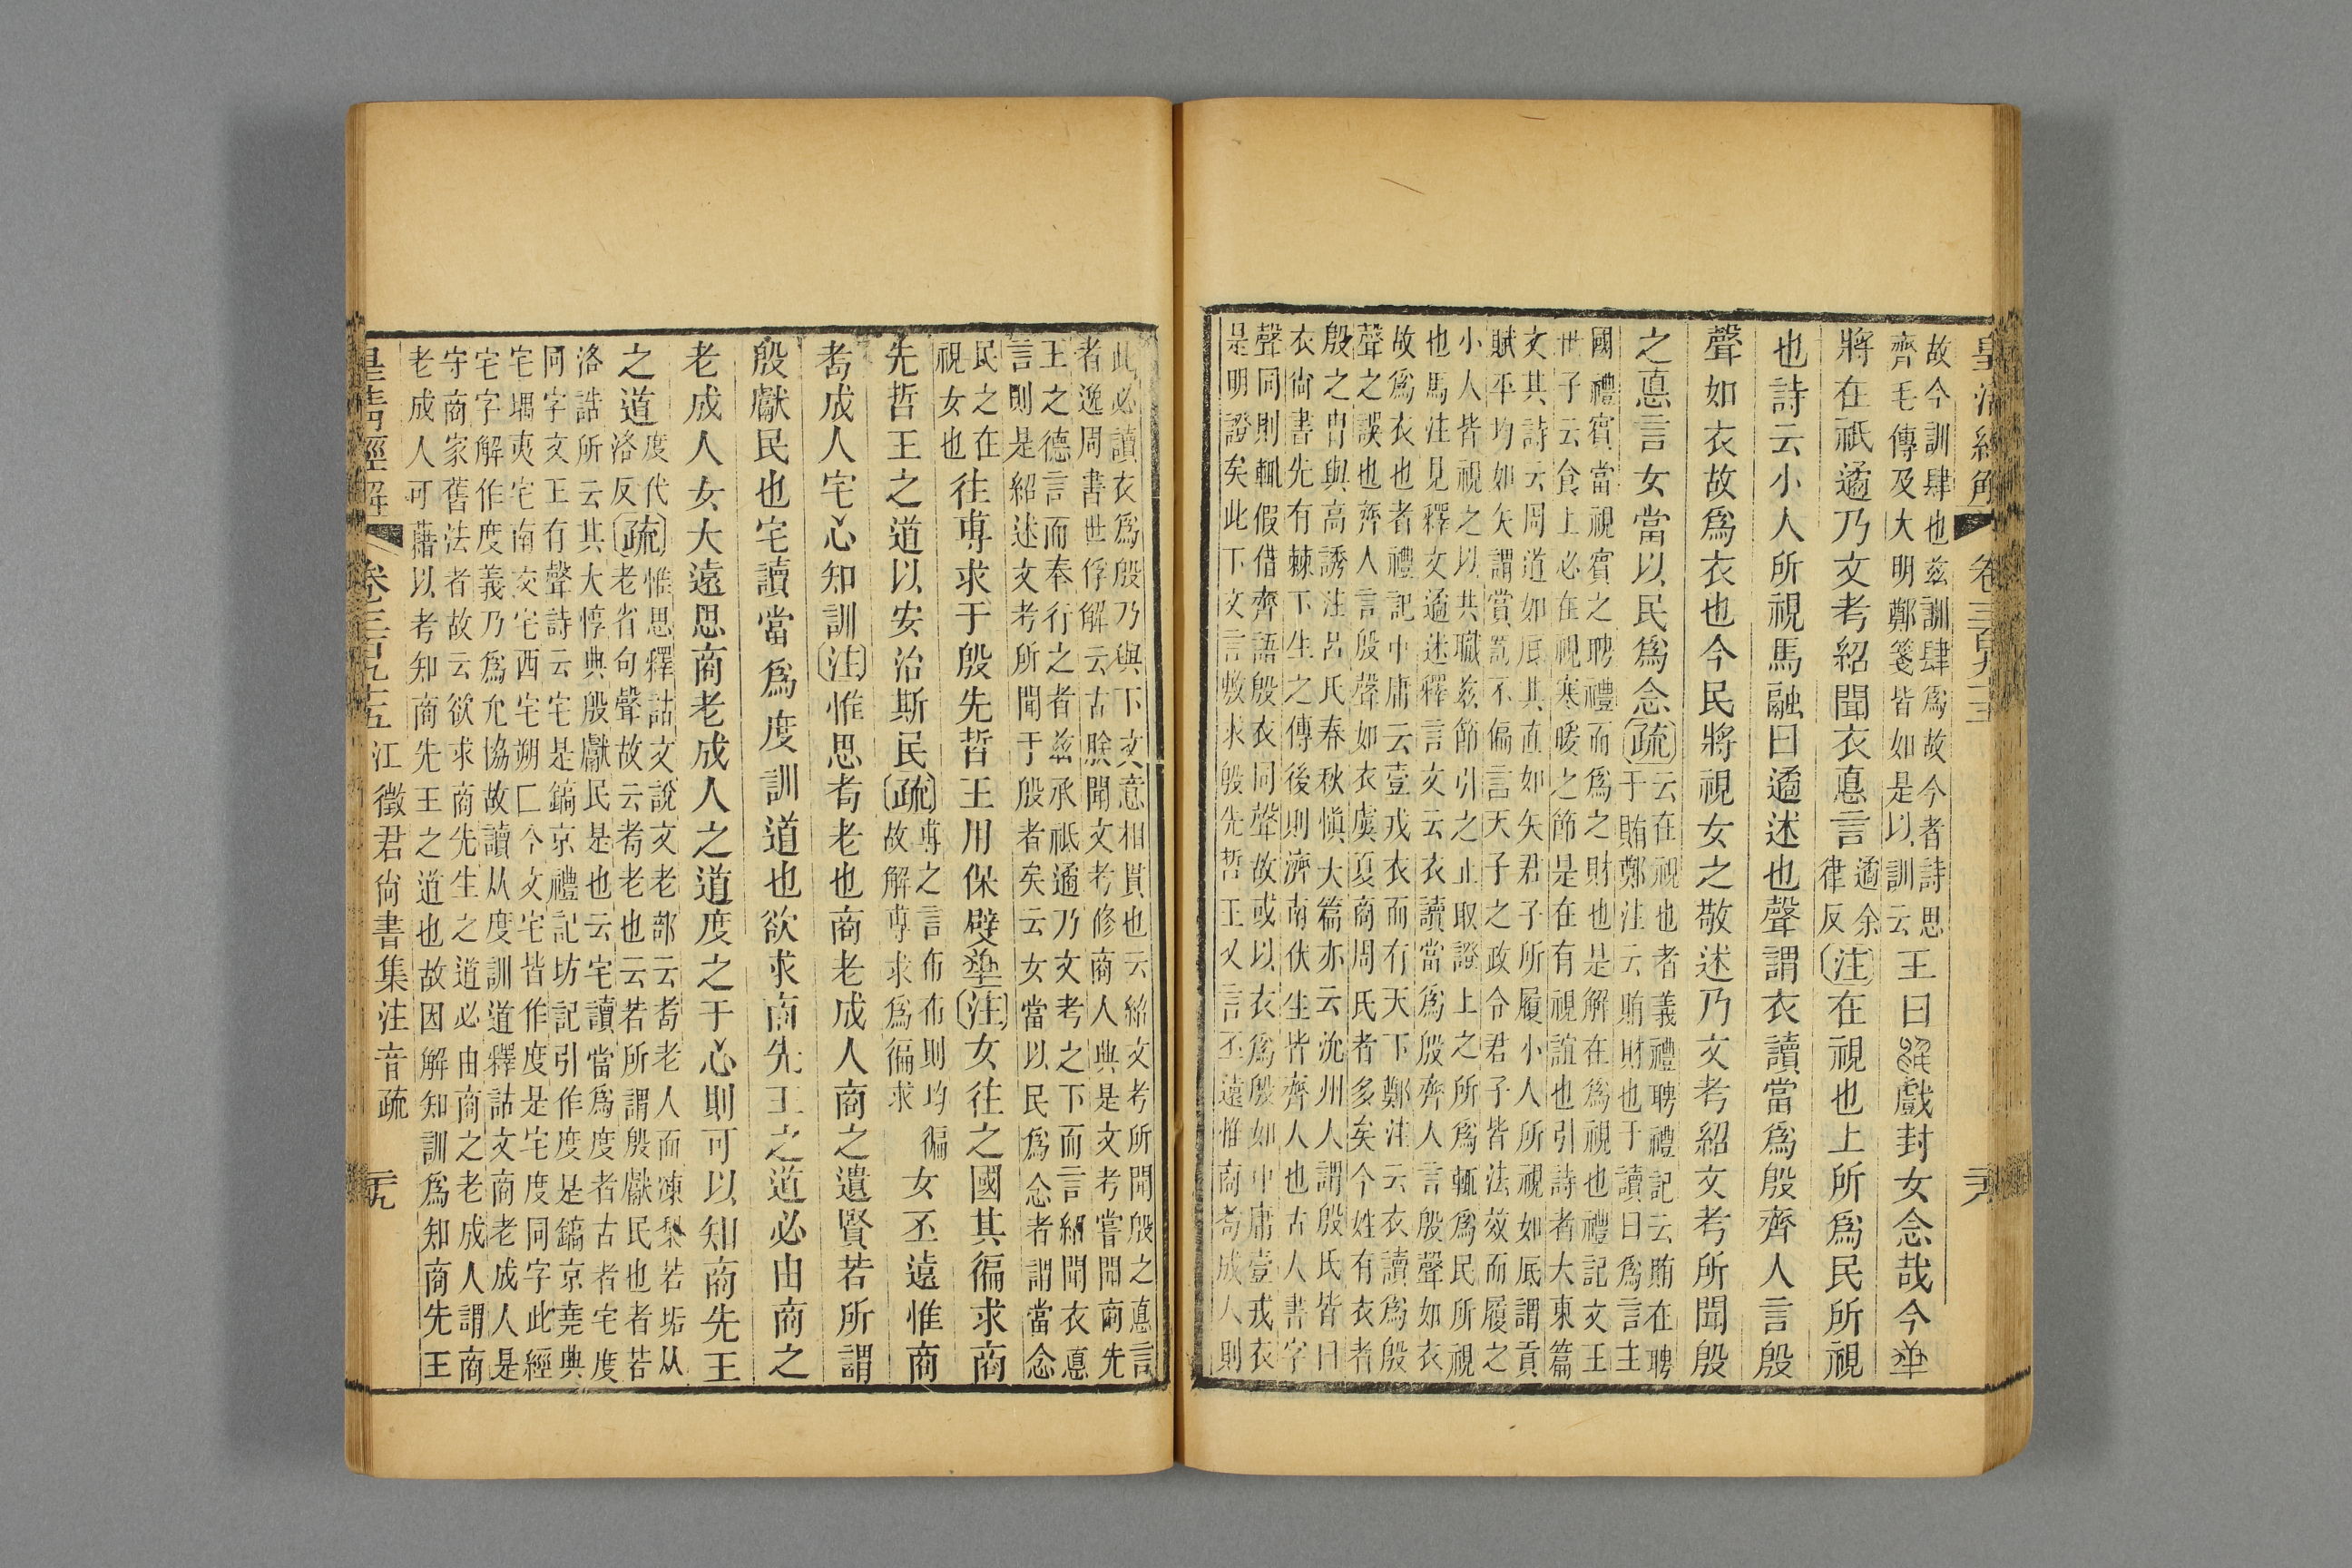 皇清經解 卷三百九十五
故今訓肆也茲訓肆爲故今者詩思
齊毛傳及大明鄭箋皆如是以訓云
王曰戲封女念哉今
將在祇遹乃文考紹聞衣悳言
遹余
律反
〔注〕在視也上所爲民所視
也詩云小人所視馬融曰遹述也聲謂衣讀當爲殷齊人言殷
聲如衣故爲衣也今民將視女之敬述乃文考紹文考所聞殷
之悳言女當以民爲念〔疏〕
云在視也者義禮聘禮記云賄在聘
于賄鄭注云賄財也于讀曰爲言主
國禮賓當視賓之聘禮而爲之財也是解在爲視也禮記文王
世子云食上必在視寒暖之節是在有視誼也引詩者大東篇
文其詩云周道如厎其直如矢君子所履小人所視如厎謂貢
賦平均如矢謂賞罰不偏言天子之政令君子皆法效而履之
小人皆視之以共職茲節引之止取證上之所爲輒爲民所視
也馬注見釋文遹述釋言文云衣讀當爲殷齊人言殷聲如衣
故爲衣也者禮記中庸云壹戎衣而有天下鄭注云衣讀爲殷
聲之誤也齊人言殷聲如衣虞夏商周氏者多矣今姓有衣者
殷之胄與高誘注呂氏春秋愼大篇亦云沇州人謂殷氏皆曰
衣尙書先有棘下生之傳後則濟南伏生皆齊人也古人書字
聲同則輒假借齊語殷衣同聲故或以衣爲殷如中庸壹戎衣
是明證矣此下文言敷求殷先哲王又言丕遠惟商耇成人則
此必讀衣爲殷乃與下文意相貫也云紹文考所聞殷之悳言
者逸周書世俘解云古朕聞文考修商人典是文考嘗聞商先
王之德言而奉行之者茲承祇遹乃文考之下而言紹聞衣悳
言則是紹述文考所聞于殷者矣云女當以民爲念者謂當念
民之在
視女也
往尃求于殷先哲王用保〔注〕女往之國其徧求商
先哲王之道以安治斯民〔疏〕
尃之言布布則均徧
故解尃求爲徧求
女丕遠惟商
耇成人宅心知訓〔注〕惟思耇老也商老成人商之遺賢若所謂
殷獻民也宅讀當爲度訓道也欲求商先王之道必由商之
老成人女大遠思商老成人之道度之于心則可以知商先王
之道
度代
洛反
〔疏〕
惟思釋詁文說文老部云耇老人面凍棃若垢从
老省句聲故云耇老也云若所謂殷獻民也者若
洛誥所云其大惇典殷獻民是也云宅讀當爲度者古者宅度
同字文王有聲詩云宅是鎬京禮記坊記引作度是鎬京堯典
宅堣夷宅南交宅西宅朔匚今文宅皆作度是宅度同字此經
宅字解作度義乃爲允協故讀从度訓道釋詁文商老成人是
守商家舊法者故云欲求商先生之道必由商之老成人謂商
老成人可藉以考知商先王之道也故因解知訓爲知商先王
皇清經解 卷三百九十五 江徵君尙書集注音疏